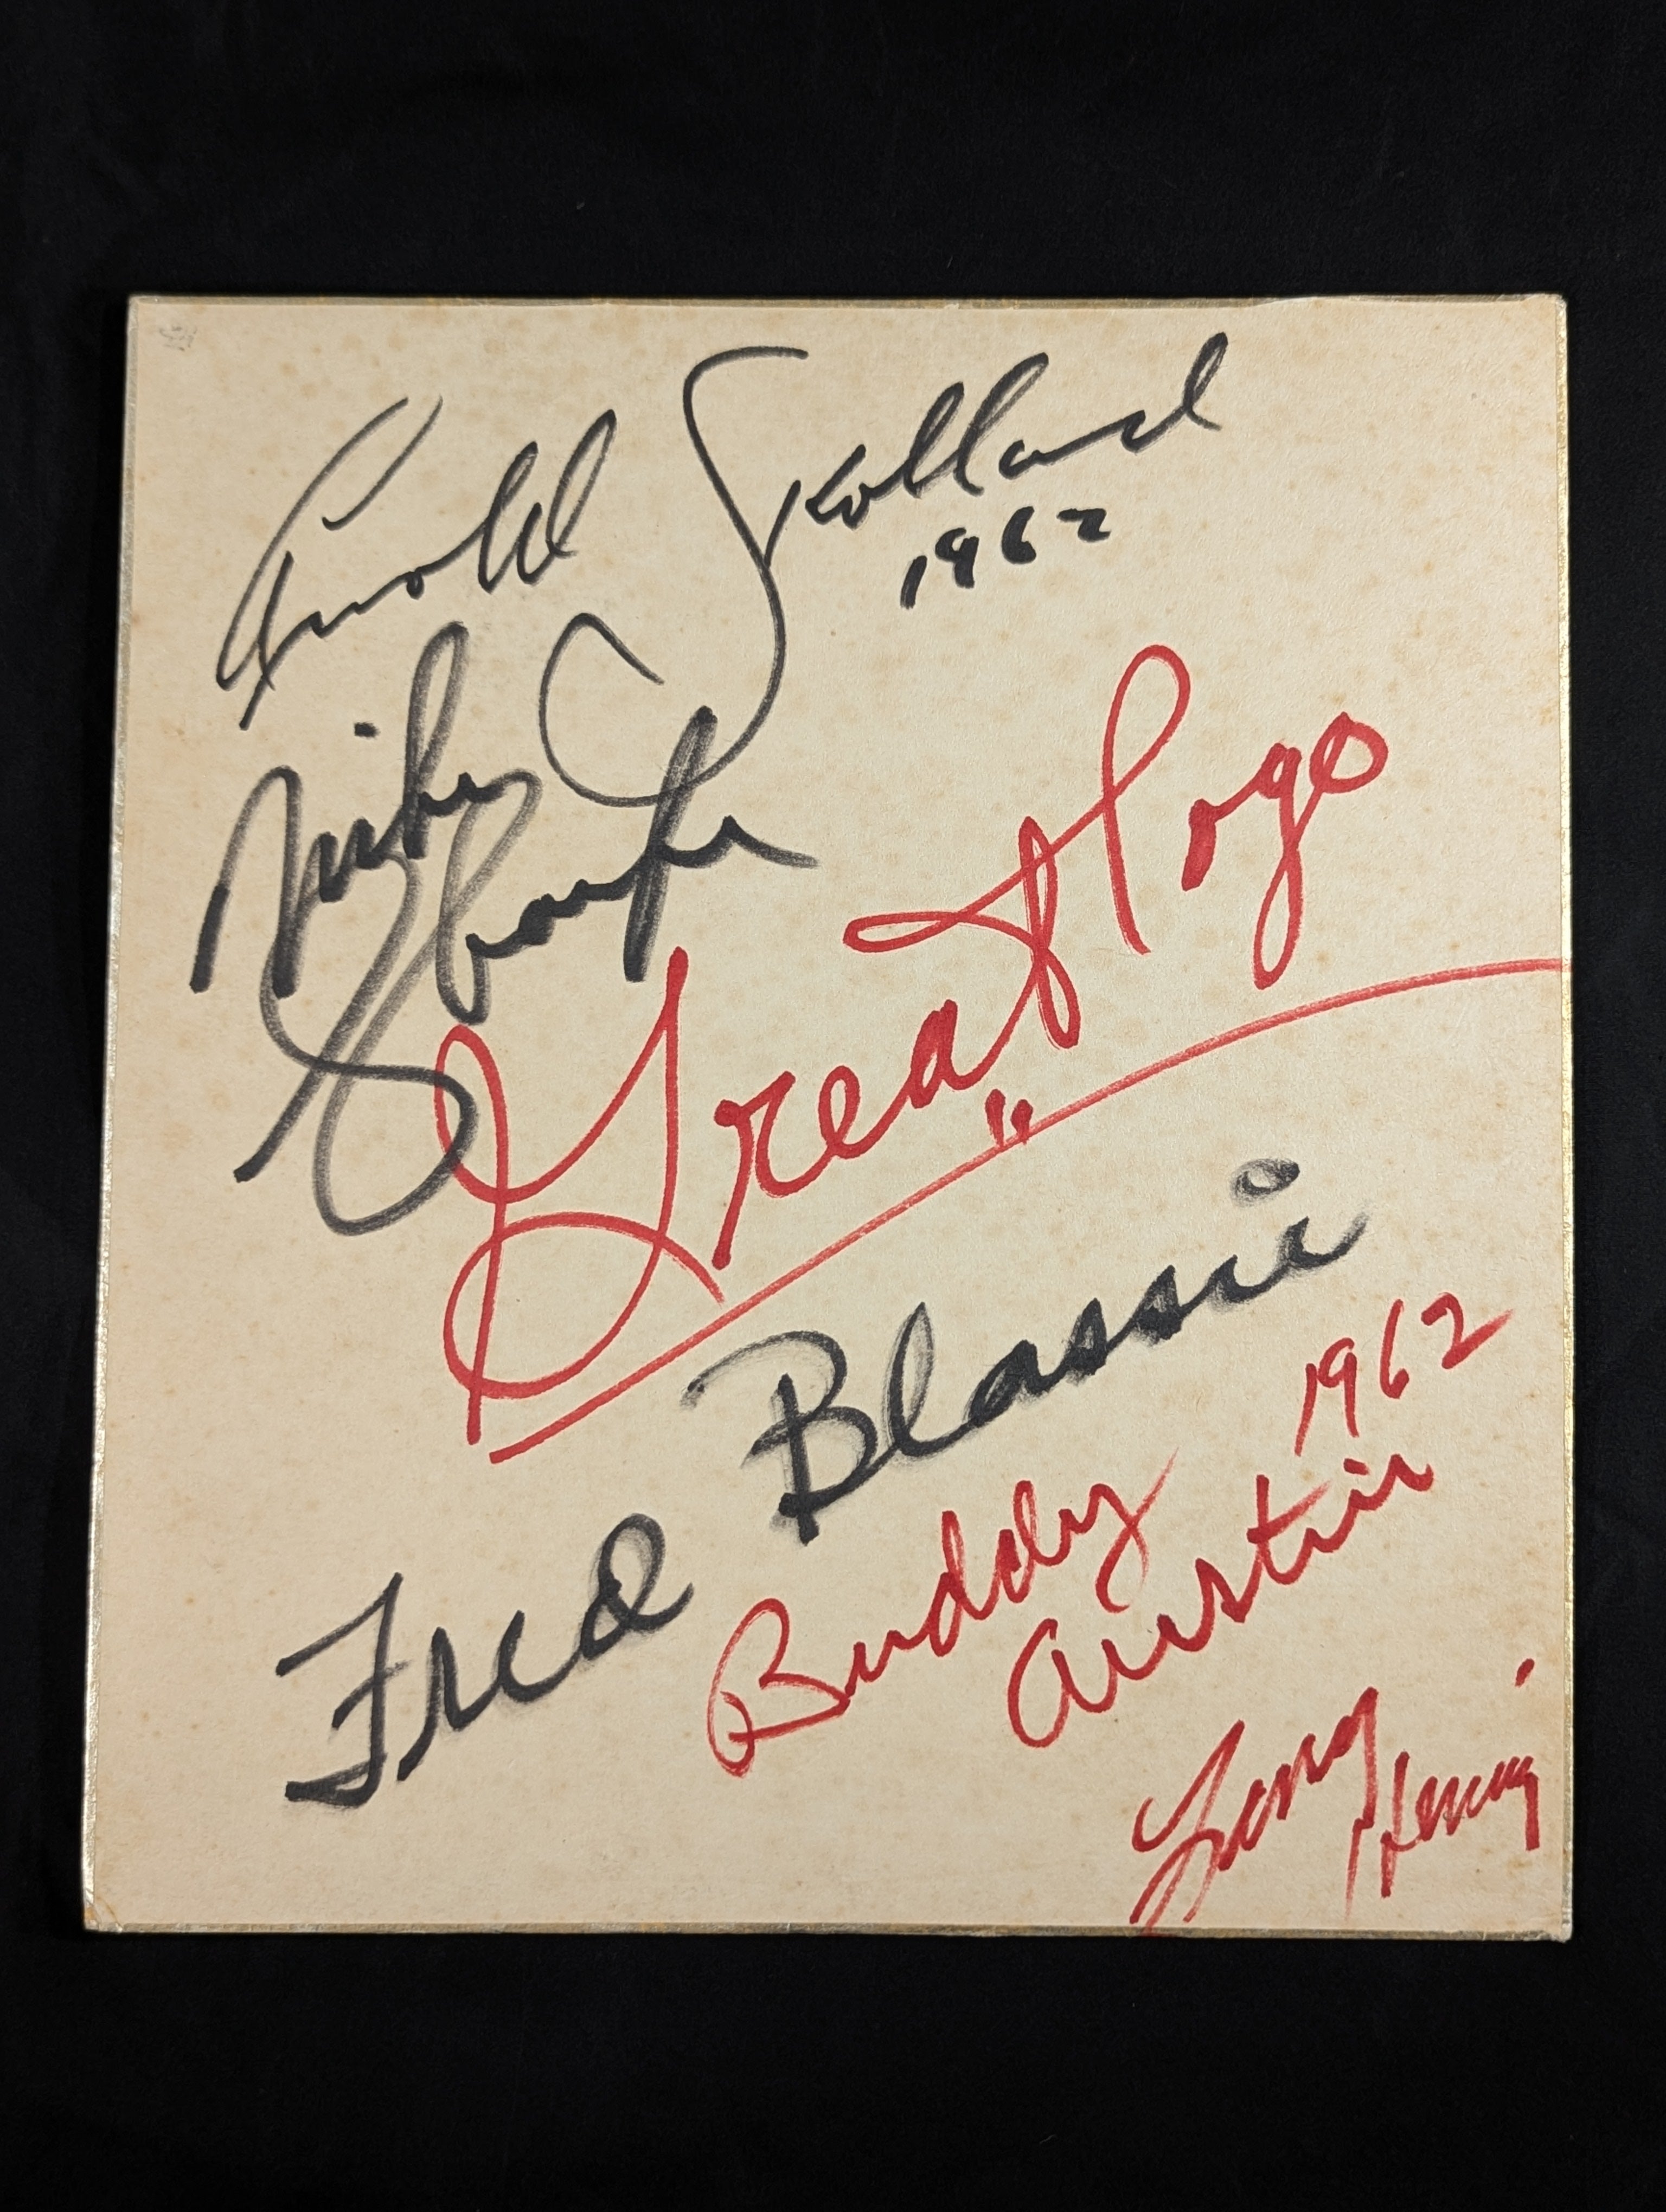 Arnold Skolland
1962
Mike Sharpe
Great Togo
Fred Blassie
1962
Buddy
Austin
Larry
Hennig